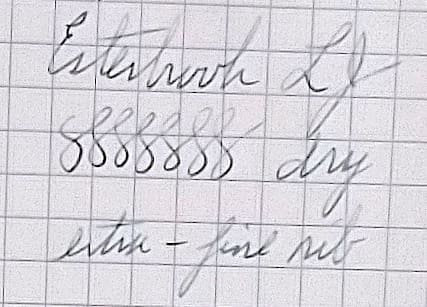 Esterbrook LJ
8888888 dry
extra - fine nib